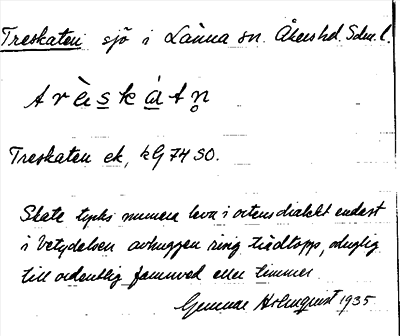 Treskaten sjö i Länna sn. Åkershd. Sdm. l.
t r ä̀ s k á t n̥
Treskaten ek, kG 74 SO.
Skate tycks numera leva i ortens dialekt endast
i betydelsen avhuggen ring trädtopp, oduglig
till ordentlig famnved eller timmer
Gunnar Holmquist 1935